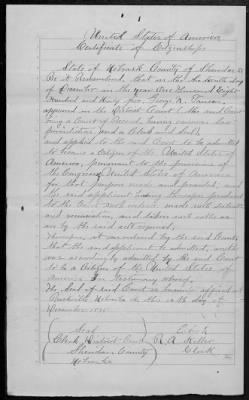 United States of America
Certificate of Citizenship
State of Nebraska County of Sheridan SS
Be it Remembered, that on the day
of December in the year One Thousand Eight
Hundred and Ninety five George K.
appeared in the District Court, the said Court
being a Court of Record, having common law
jurisdiction, and a Clerk and Seal
and applied to the said Court to be admitted
to become a citizen of the United States of
America, pursuant to the provisions of
the Congress United States of America
for that purpose made and provided. and
the said applicant having thereupon produced
to the Court such evidence, made such declaration
and renunciation, and taken such oaths as
are by the said acts required.
Thereupon, it was ordered by the said Court
that the said applicant be admitted, and he
was accordingly admitted by the said Court
to be a Citizen of the United States of
America In Testimony whereof
The Seal of said Court is hereunto affixed at
Rushville Nebraska on this day of
December 1895
Seal
Clerk District Court
Sheridan County
Nebraska
R. A. Keller
Clerk